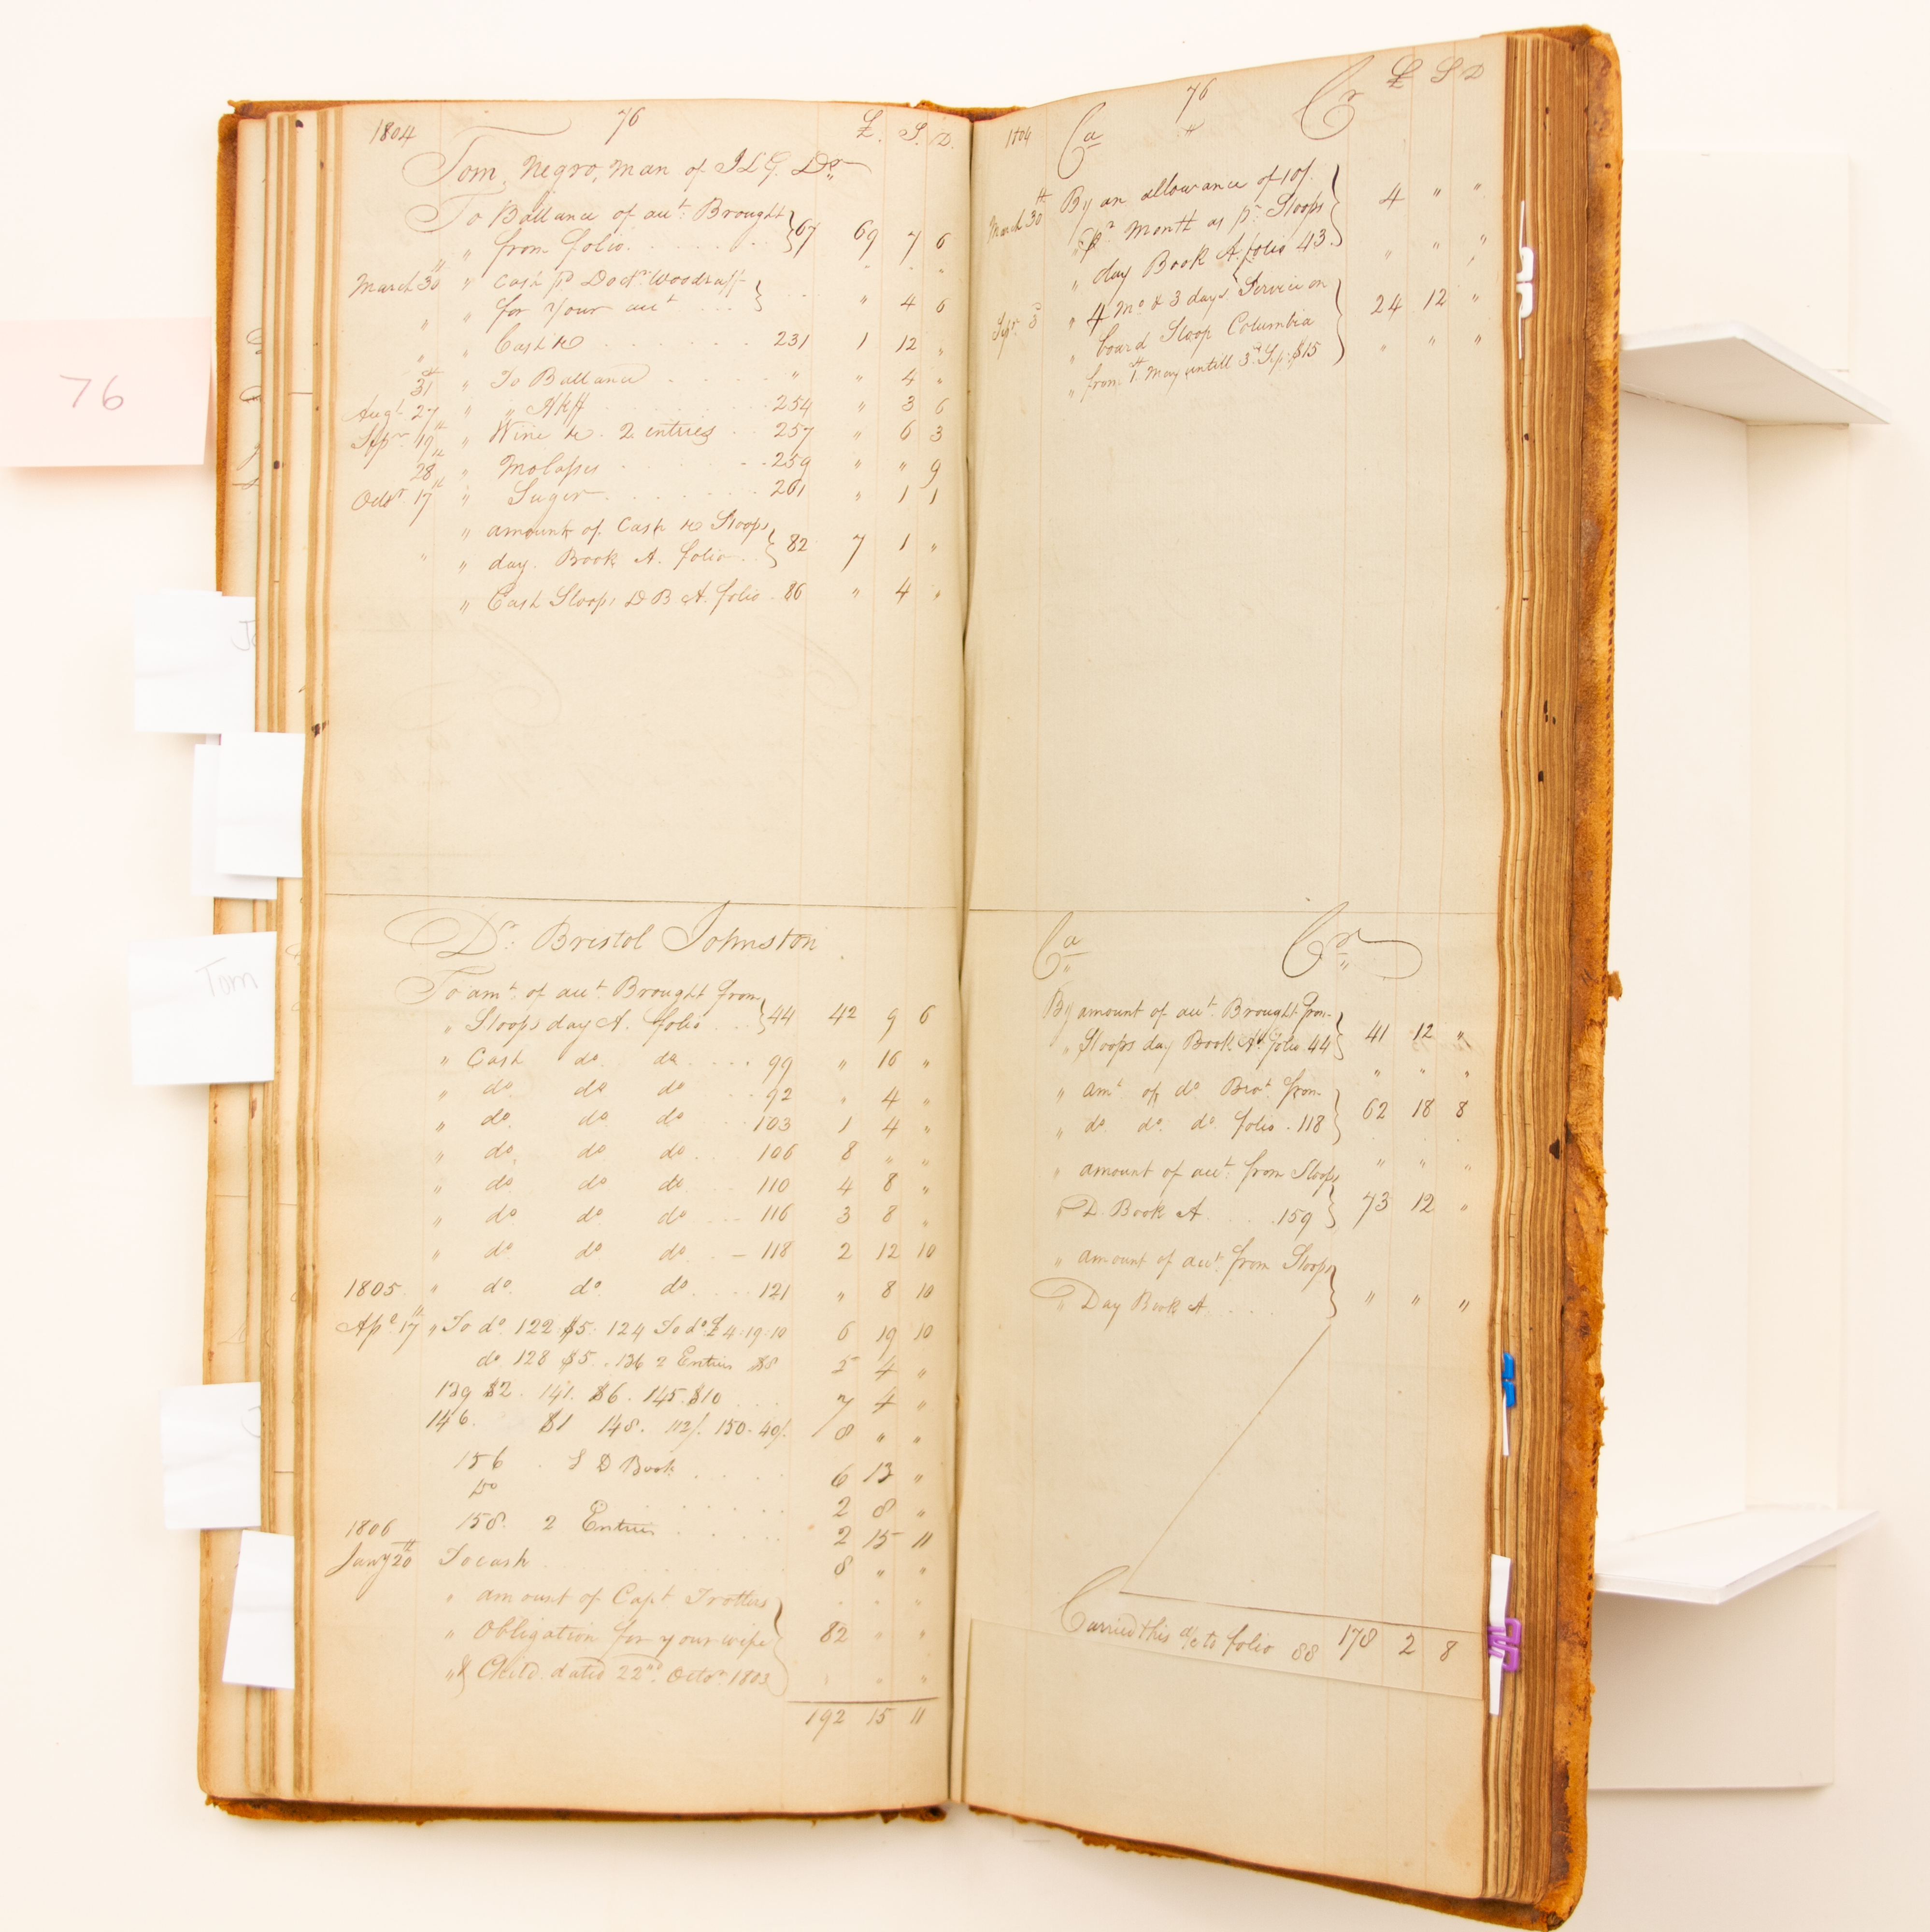 76
Jo
Tom
1804 76 £. S. D.
Tom, Negro, Man of JLG. Dr.
To Ballance of acct. Brought
" from folio 67 69 7 6
March 30th " Cash pd. Doctr. Woodruff
" " for Your acct " 4 6
" " Cash &c 231 1 12 "
31st " To Ballance " " 4 "
Augt. 27th " " 254 " 3 6
Sepr. 19th " Wine &c. 2 entries 257 " 6 3
28th " Molasses 259 " " 9
Octr 17th " Suger 261 " 1 1
" amount of Cash &c Sloops
" " day. Book A. folio 82 7 1 "
" Cash Sloops D B A. folio 86 " 4 "
Dr. Bristol Johnston
To amt. of acct. Brought from
" Sloops day A. folio 44 42 9 6
" Cash do. do. 99 " 16 "
" do do do 92 " 4 "
" do. do do 103 1 4 "
" do. do. do. 106 8 " "
" do do. do 110 4 8 "
" do do. do 116 3 8 "
" do do. do 118 2 12 10
1805. " do. do. do. 121 " 8 10
Apl. 17th " To do. 122 $5. 124 To do. £4.19.10 6 19 10
do. 128 $5. 136 2 Entries $8 5 4 "
139 $2. 141. $6. 145. $10 7 4 "
146. $1 148. 112/. 150. 40/. 8 " "
156 S D Book 6 13 "
Do 2 8 "
158. 2 Entries 2 15 11
1806
Jany 20th To cash 8 " "
" amount of Capt Trotters
" Obligation for your wife 82 " "
" & Child. dated 22nd. Octor. 1803
192 15 11
76 £ S D
1804 Ca Cr
March 30th By an allowance of 10/.
" pr Month as pr. Sloops 4 " "
" day Book A. folio 43. " " "
Sepr. 3d " 4 Mo & 3 days Service on
" board Sloop Columbia 24 12 "
" from 1st. May untill 3d Sep. $15 " " "
Ca Cr
By amount of acct. Brought from
" Sloops day Book A folio 44 41 12 "
" " "
" amt of do Brot. from
" do. do. do. folio. 118 62 18 8
" amount of acct. from Sloops " " "
" D. Book A. 159 73 12 "
" amount of acct. from Sloops
" Day Book A. " " "
Carried this a/c to folio 88 178 2 8